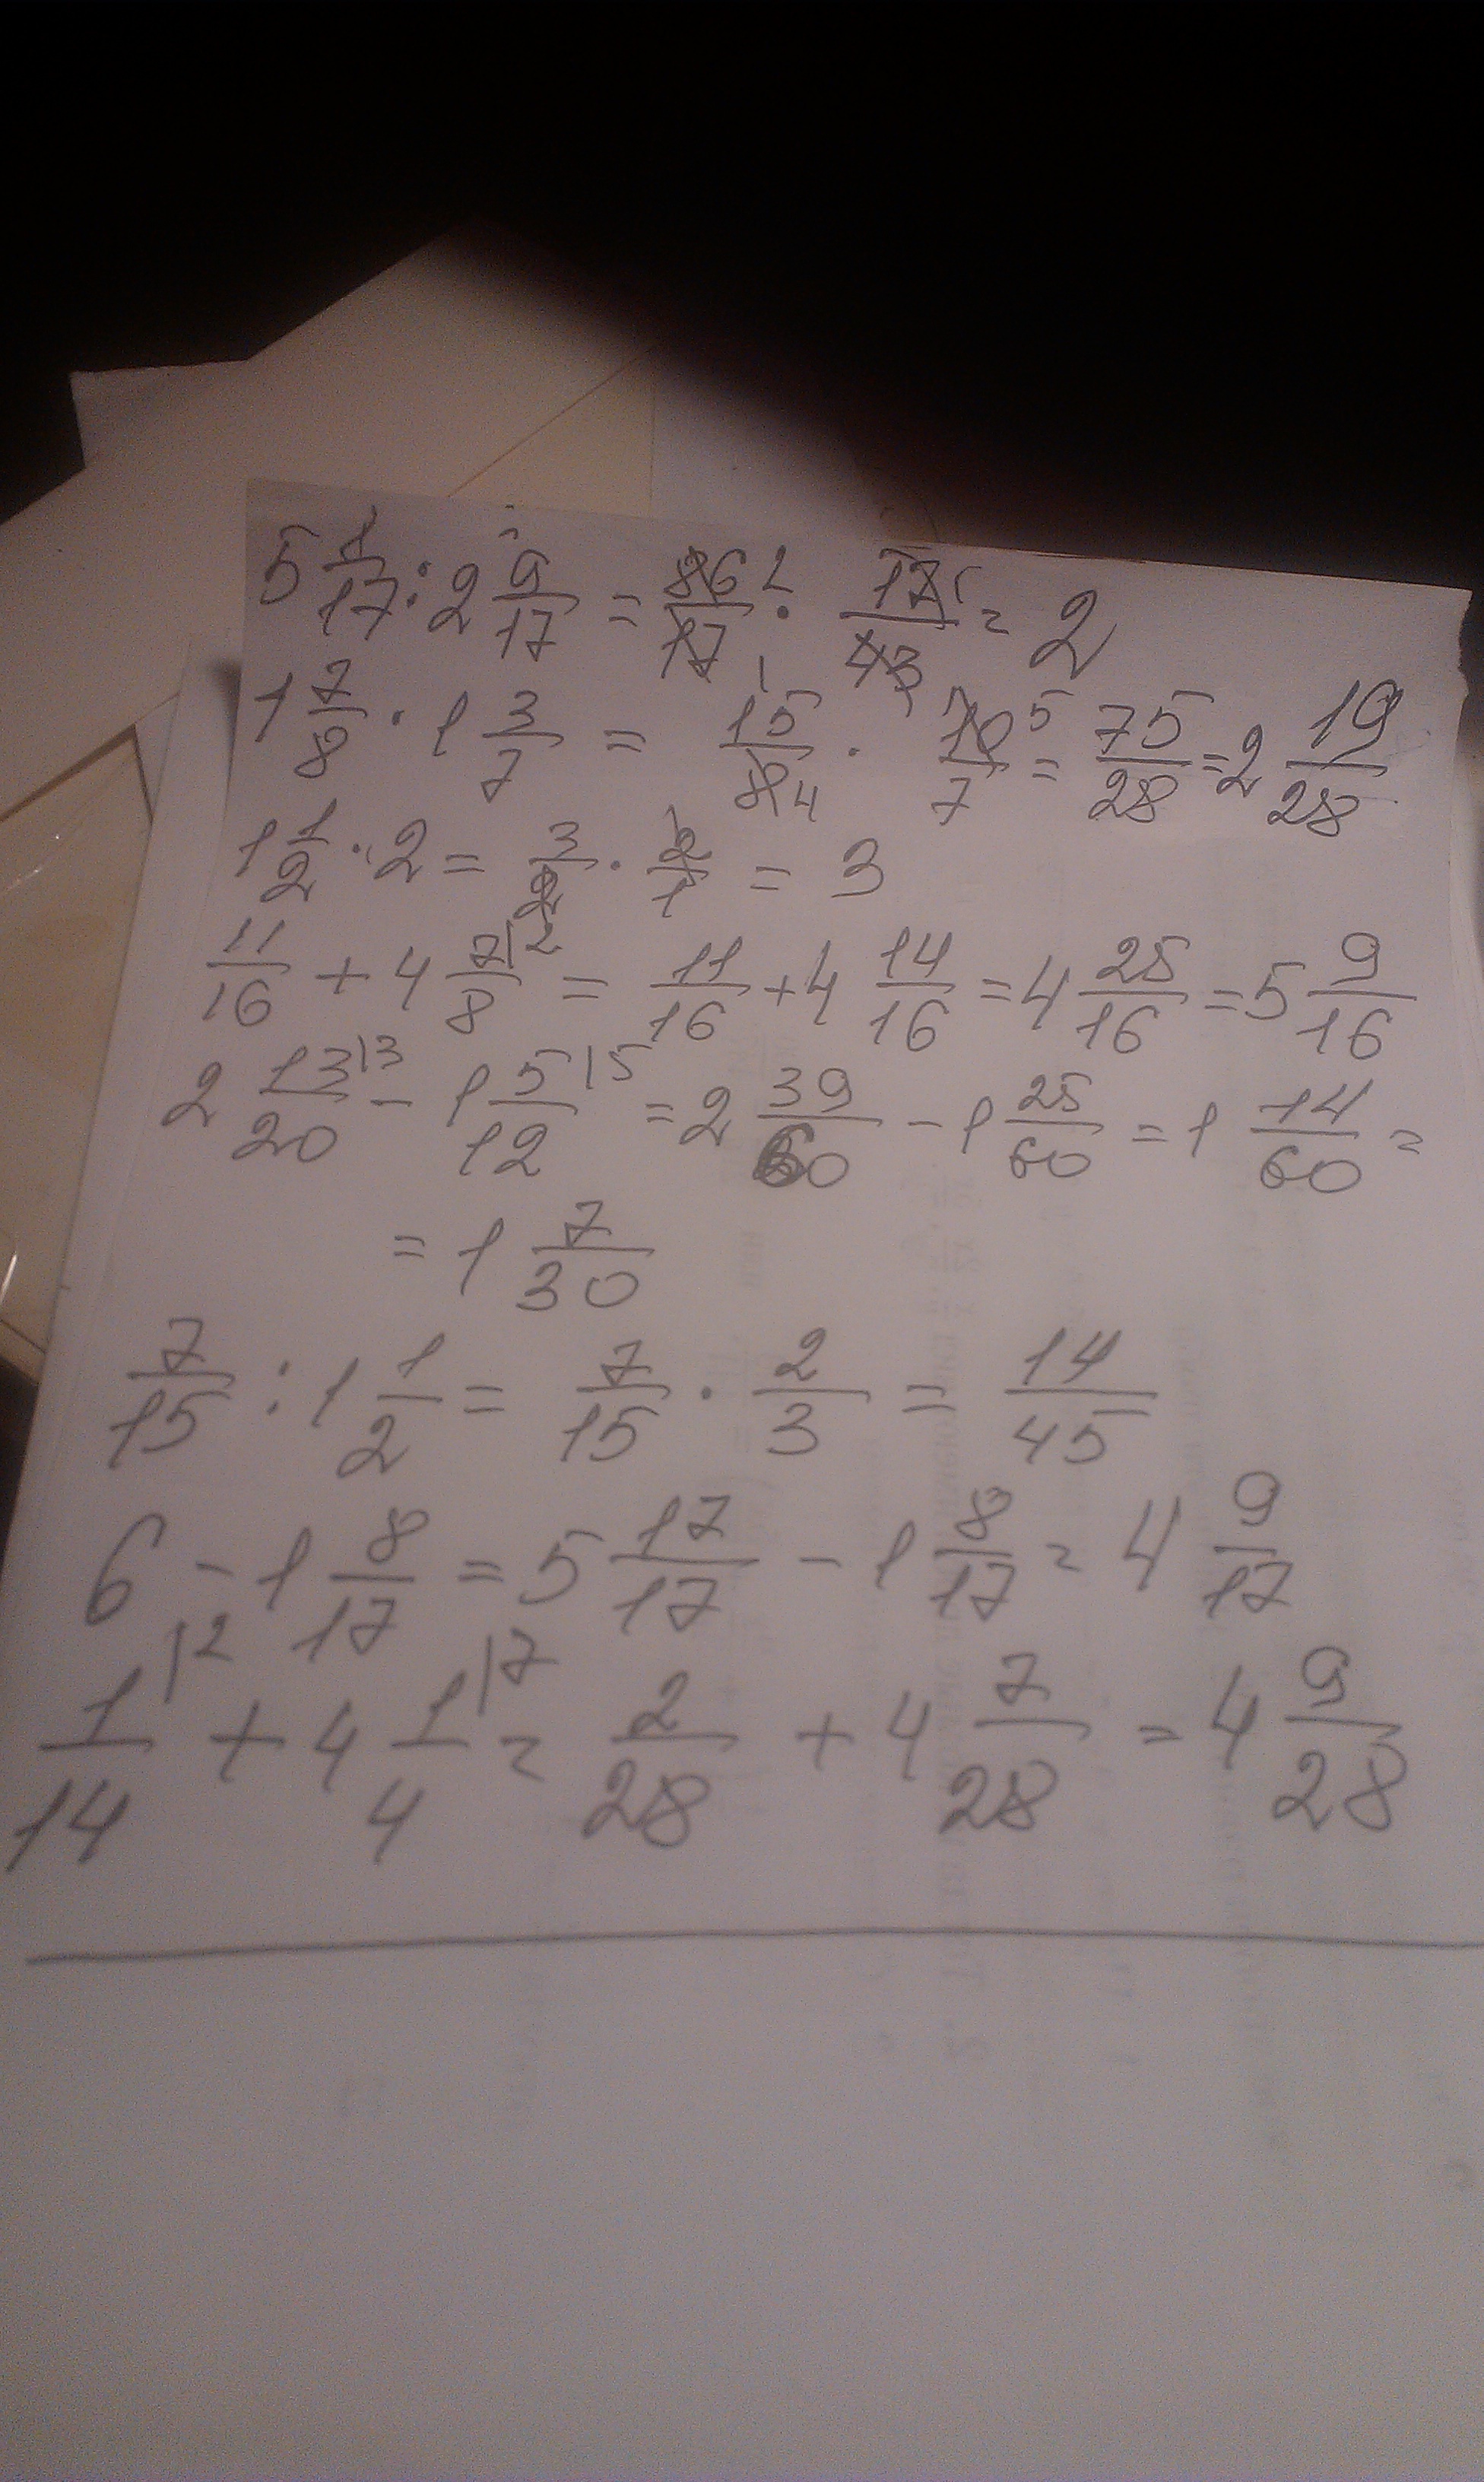 5 1/17 : 2 9/17 = 86/17 2/1 · 17/43 1/1 = 2
1 7/8 · 1 3/7 = 15/8 4 · 10/7 5 = 75/28 = 2 19/28
1 1/2 · 2 = 3/2 · 2/1 = 3
11/16 + 4 7/8 |2 = 11/16 + 4 14/16 = 4 25/16 = 5 9/16
2 13/20 |3 - 1 5/12 |5 = 2 39/60 - 1 25/60 = 1 14/60 =
= 1 7/30
7/15 : 1 1/2 = 7/15 · 2/3 = 14/45
6 - 1 8/17 = 5 17/17 - 1 8/17 = 4 9/17
1/14 |2 + 4 1/4 |7 = 2/28 + 4 7/28 = 4 9/28